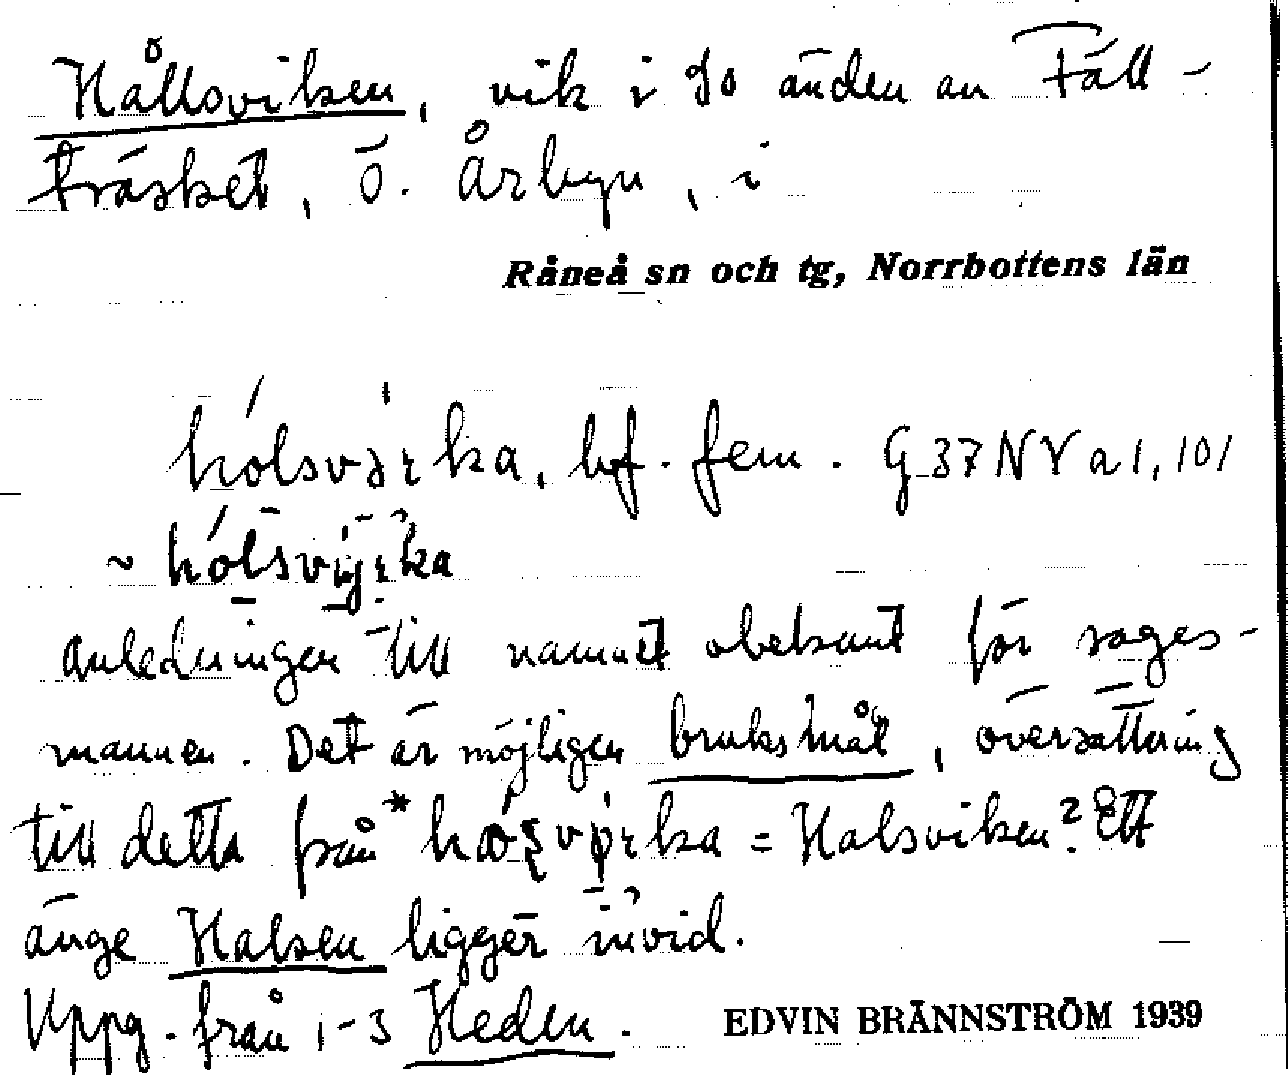 Hållsviken, vik i So änden av Fäll-
träsket, ö. Årbyn, i
Råneå sn och tg, Norrbottens län
hólsvàrka, bf. fem. G 37 NV a 1, 101
~ hólsvỳrka
anledningen till namnet obekant för sages-
mannen. Det är möjligen bruksmål, översättning
till detta från * = Halsviken? Ett
änge Halsen ligger invid.
Uppg. från 1-3 Heden.
EDVIN BRÄNNSTRÖM 1939